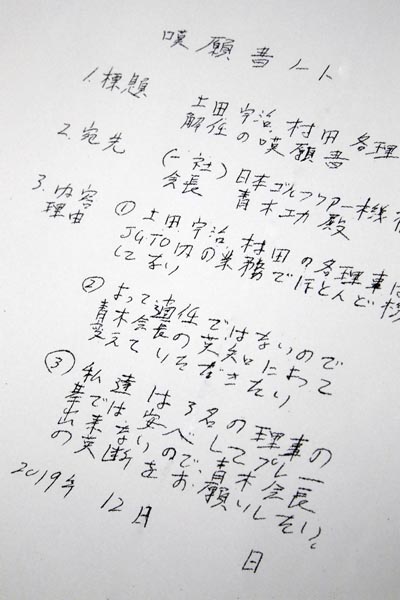 嘆願書ノート
1. 標題
土田 宇治 村田 各理
解任の嘆願書
2. 宛先
(一社) 日本ゴルフツアー機
会長 青木功殿
3. 内容
理由
① 土田 宇治 村田の各理事は
JGTO内の業務でほとんど
してない
② よって適任ではないので
青木会長の英知によって
変えていただきたい
③ 私達は3名の理事の
基では安心してプレー
出来ないので青木会長
の英断をお願いしたい。
2019年 12月
日